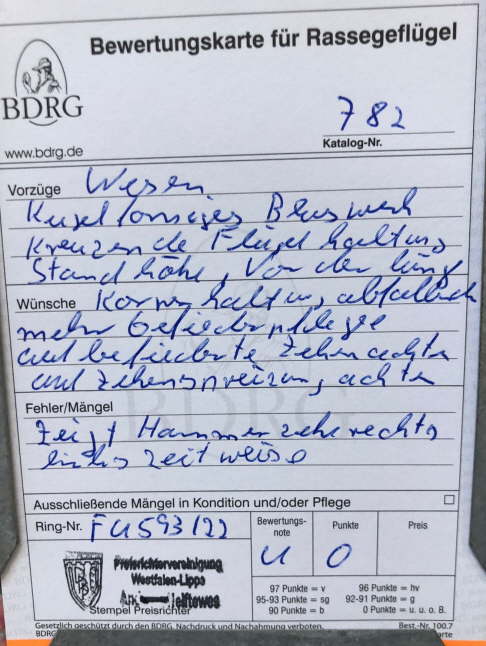 Bewertungskarte für Rassegeflügel
BDRG
www.bdrg.de
782
Katalog-Nr.
Vorzüge Wesen
Kugelförmiges Blaswerk
Kreuzende Flügelhaltung
Standhöhe, Vorderlänge
Wünsche Körperhaltung abfallend
mehr Gefiederpflege
auf befiederte Zehen achten
auf Zehenspreizung achten
Fehler/Mängel
Zeigt Hammerzehe rechts
links zeitweise
Ausschließende Mängel in Kondition und/oder Pflege
Ring-Nr. FU593/22
Bewertungs-
note
Punkte
Preis
u 0
Preisrichtervereinigung
Westfalen-Lippe
Stempel Preisrichter
97 Punkte = v 96 Punkte = hv
95-93 Punkte = sg 92-91 Punkte = g
90 Punkte = b 0 Punkte = u. u. o. B.
Gesetzlich geschützt durch den BDRG. Nachdruck und Nachahmung verboten. Best.-Nr. 100.7
BDRG